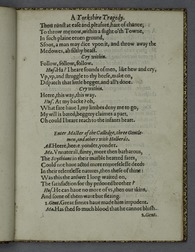 A Yorkshire Tragedy.
Thou runst at ease and pleasure, fuel of chance,
To throw me now, within a flight oth Towne,
In such plaine ground,
Sfoot, a man may dice vpon it, and throw away the
Medowes,
Cry within.
Follow, follow, follow.
Hus. Ha! I heare sounds of men, like hew and cry:
Vp, vp, and struggle to thy horse, make on,
Dispatch that little begger, and all's done.
Cry within.
Heere, this way, this way.
Hus. At my backe? oh,
What fate haue I, my limbes deny me to go,
My will is
Oh could I heare reach to the infant heart.
Enter Master of the Colledge, three Gentle-
men, and others with Holberds.
All. Heere, heere, yonder, yonder.
Ma. Vnnaturall, flinty, more then barbarous,
The Scythians in their marble hearted
Could not haue acted more remorselesse deeds
In their relentlesse natures, then these of thine:
Was this the answer I long waited on,
The satisfaction for thy prisoned brother?
Hus. He can haue no more of vs, then our skins,
And some of them want but fleaing.
1 Gent. Great sinnes haue made him impudent.
Ma. Has shed so much bloud that he cannot blush.
2. Gent.